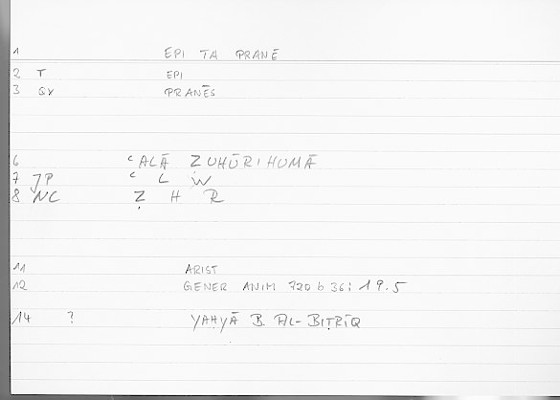 1 EPI TA PRANĒ
2 T EPI
3 QV PRANĒS
6 ʿALĀ ẒUHŪRIHUMĀ
7 JP ʿ L W
8 NC Ẓ H R
11 ARIST
12 GENER ANIM 720 b 36; 19.5
14 ? YAḤYĀ B AL-BIṬRĪQ